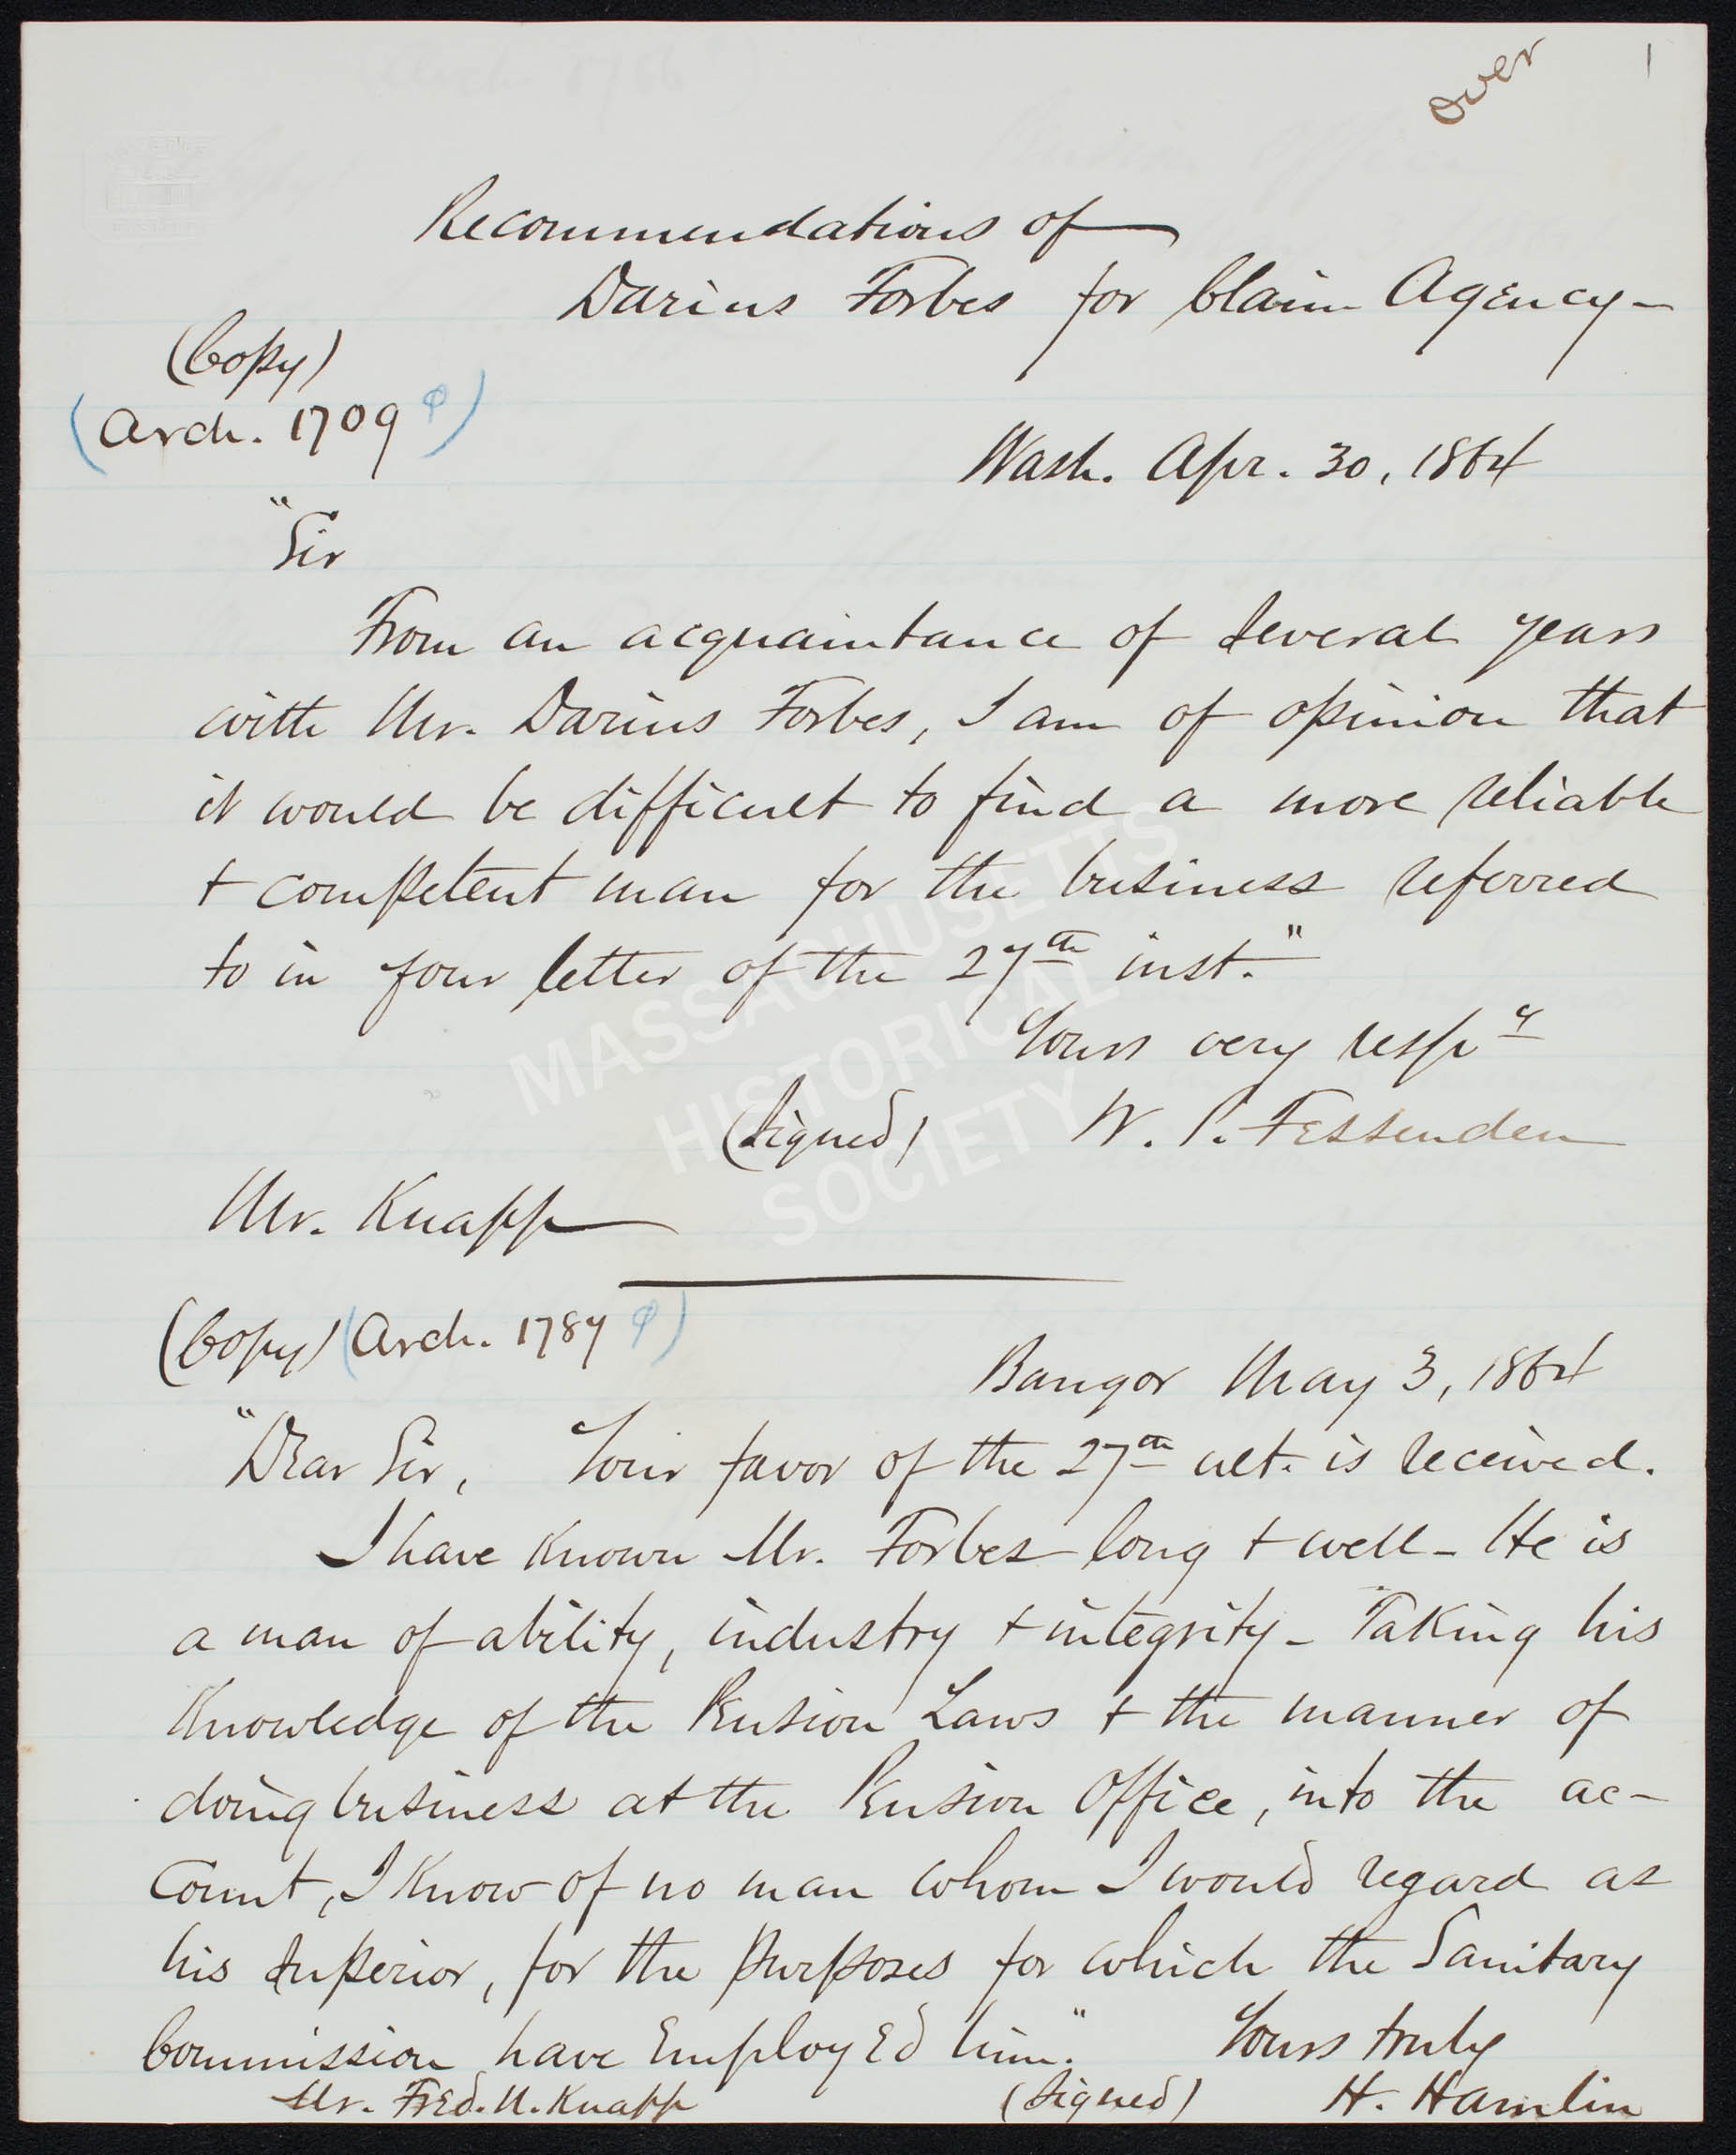 over
1
Recommendations of
Darius Forbes for Claim Agency-
(Copy)
(Arch. 1709 φ)
Wash. Apr. 30, 1864
"Sir
From an acquaintance of several years
with Mr. Darius Forbes, I am of opinion that
it would be difficult to find a more reliable
+ competent man for the business referred
to in your letter of the 27th inst."
Yours very respy
(Signed) W. P. Fessenden
Mr. Knapp
(Copy) (Arch. 1787 φ)
Bangor May 3, 1864
"Dear Sir, Your favor of the 27th ult. is received.
I have known Mr. Forbes long + well - He is
a man of ability, industry + integrity - Taking his
knowledge of the Pension Laws + the manner of
doing business at the Pension Office, into the ac-
count, I know of no man whom I would regard as
his superior, for the purposes for which the Sanitary
Commission have employed him." Yours truly
Mr. Fred. N. Knapp (Signed) H. Hamlin
MASSACHUSETTS
HISTORICAL
SOCIETY